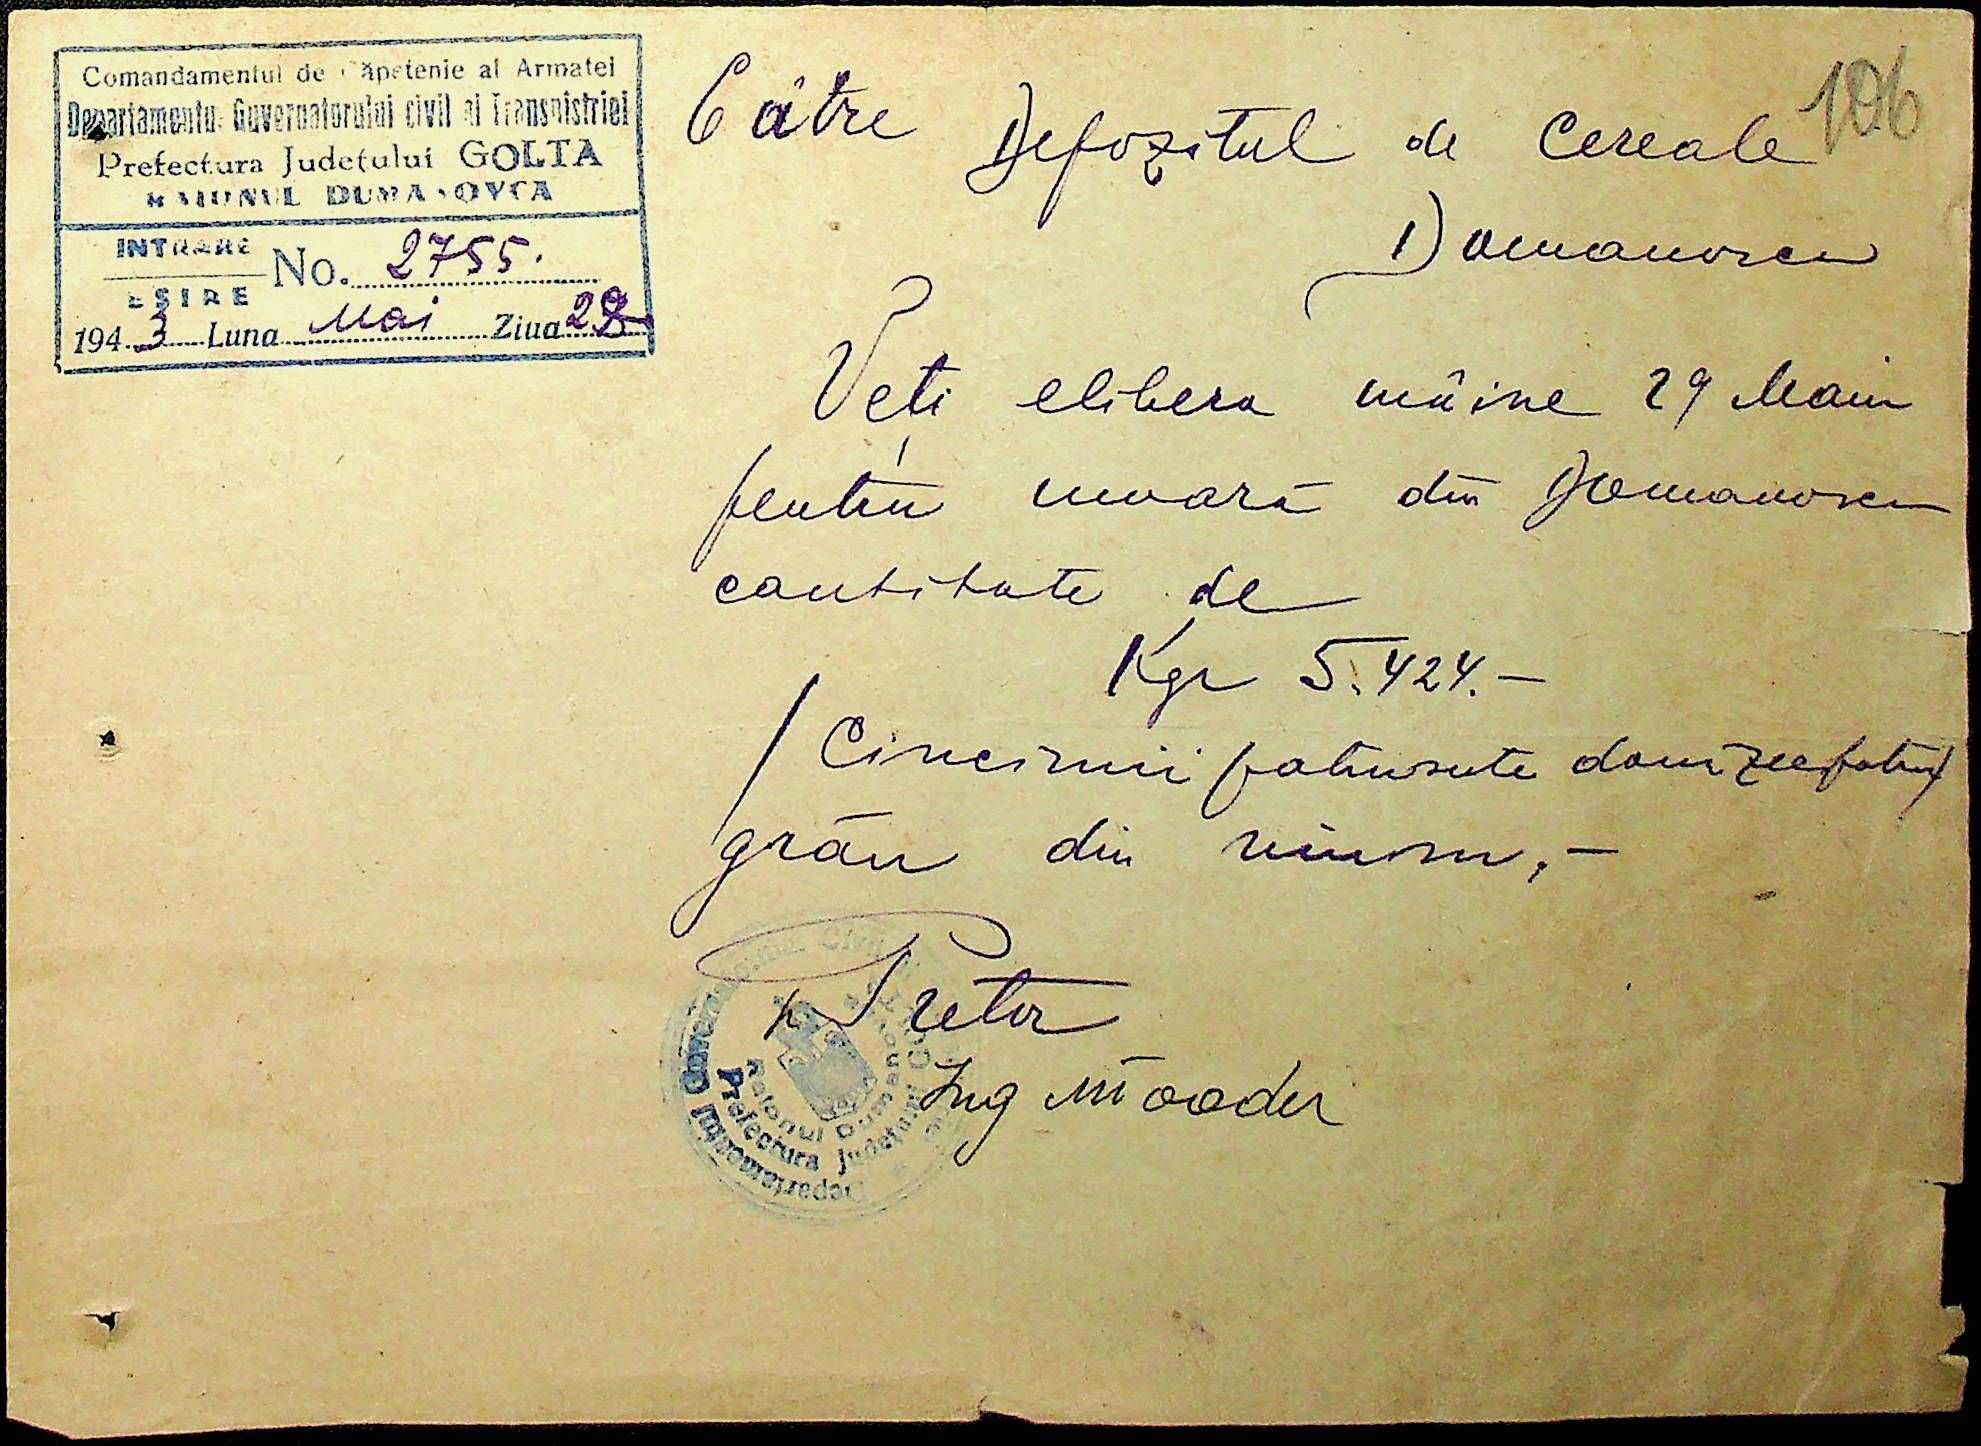 Comandamentul de Căpetenie al Armatei
Departamentul Guvernatorului civil al Transnistriei
Prefectura Județului GOLTA
RAIONUL DUMANOVCA
INTRARE
EȘIRE
No. 2755.
1943 Luna Mai Ziua 28
106
Către Depozitul de Cereale
Domanovca
Veți elibera mâine 29 Main
pentru moară din Domanovca
cantitate de
Kgr 5.424.—
/Cincimii patrusute douăzecipatru/
grân din .—
p Pretor
Ing
Departamentul Guvernatorului Civil
Prefectura Județului Golta
Raionul Dumanovca